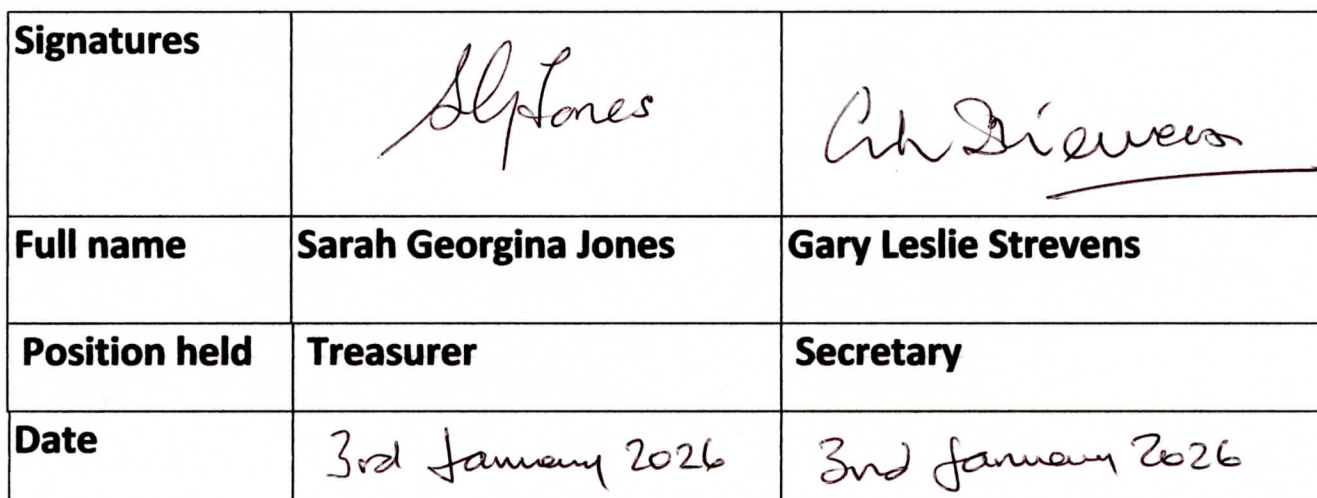 Signatures
SGJones
Full name Sarah Georgina Jones Gary Leslie Strevens
Position held Treasurer Secretary
Date 3rd January 2026 3rd January 2026